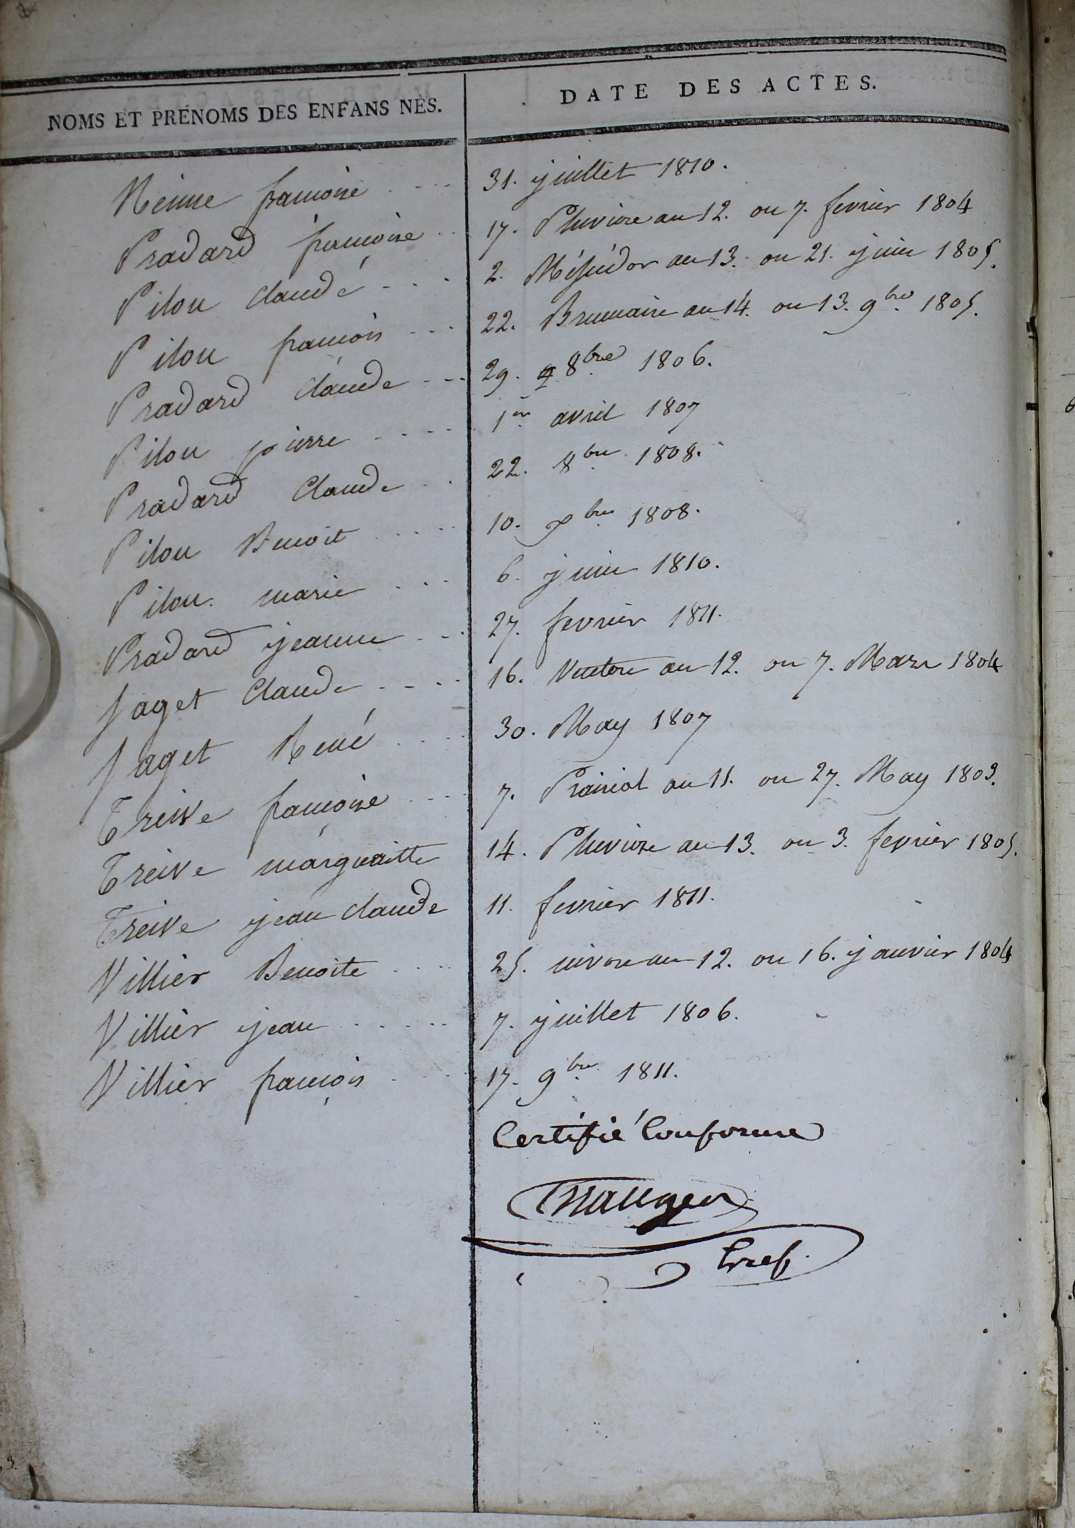 NOMS ET PRÉNOMS DES ENFANS NÉS. DATE DES ACTES.
françoise 31. juillet 1810.
Pradard françoise 17. Pluviose an 12. ou 7. fevrier 1804
Pilou Claude 2. Méssidor an 13. ou 21. juin 1805.
Pilou françois 22. Brumaire an 14. ou 13. 9bre 1805.
Pradard Claude 29. 8bre 1806.
Pilou pierre 1er avril 1807
Pradard Claude 22. 8bre 1808.
Pilou Benoit 10. xbre 1808.
Pilou marie 6. juin 1810.
Pradard jeanne 27. fevrier 1811.
Saget Claude 16. Ventose an 12. ou 7. Mars 1804
Saget René 30. May 1807
Treive françoise 7. Prairial an 11. ou 27. May 1803.
Treive margueritte 14. Pluviose an 13. ou 3. fevrier 1805.
Treive jean claude 11. fevrier 1811.
Villier Benoite 25. nivose an 12. ou 16. janvier 1804
Villier jean 7. juillet 1806.
Villier françois 17. 9bre 1811.
Certifié Conforme